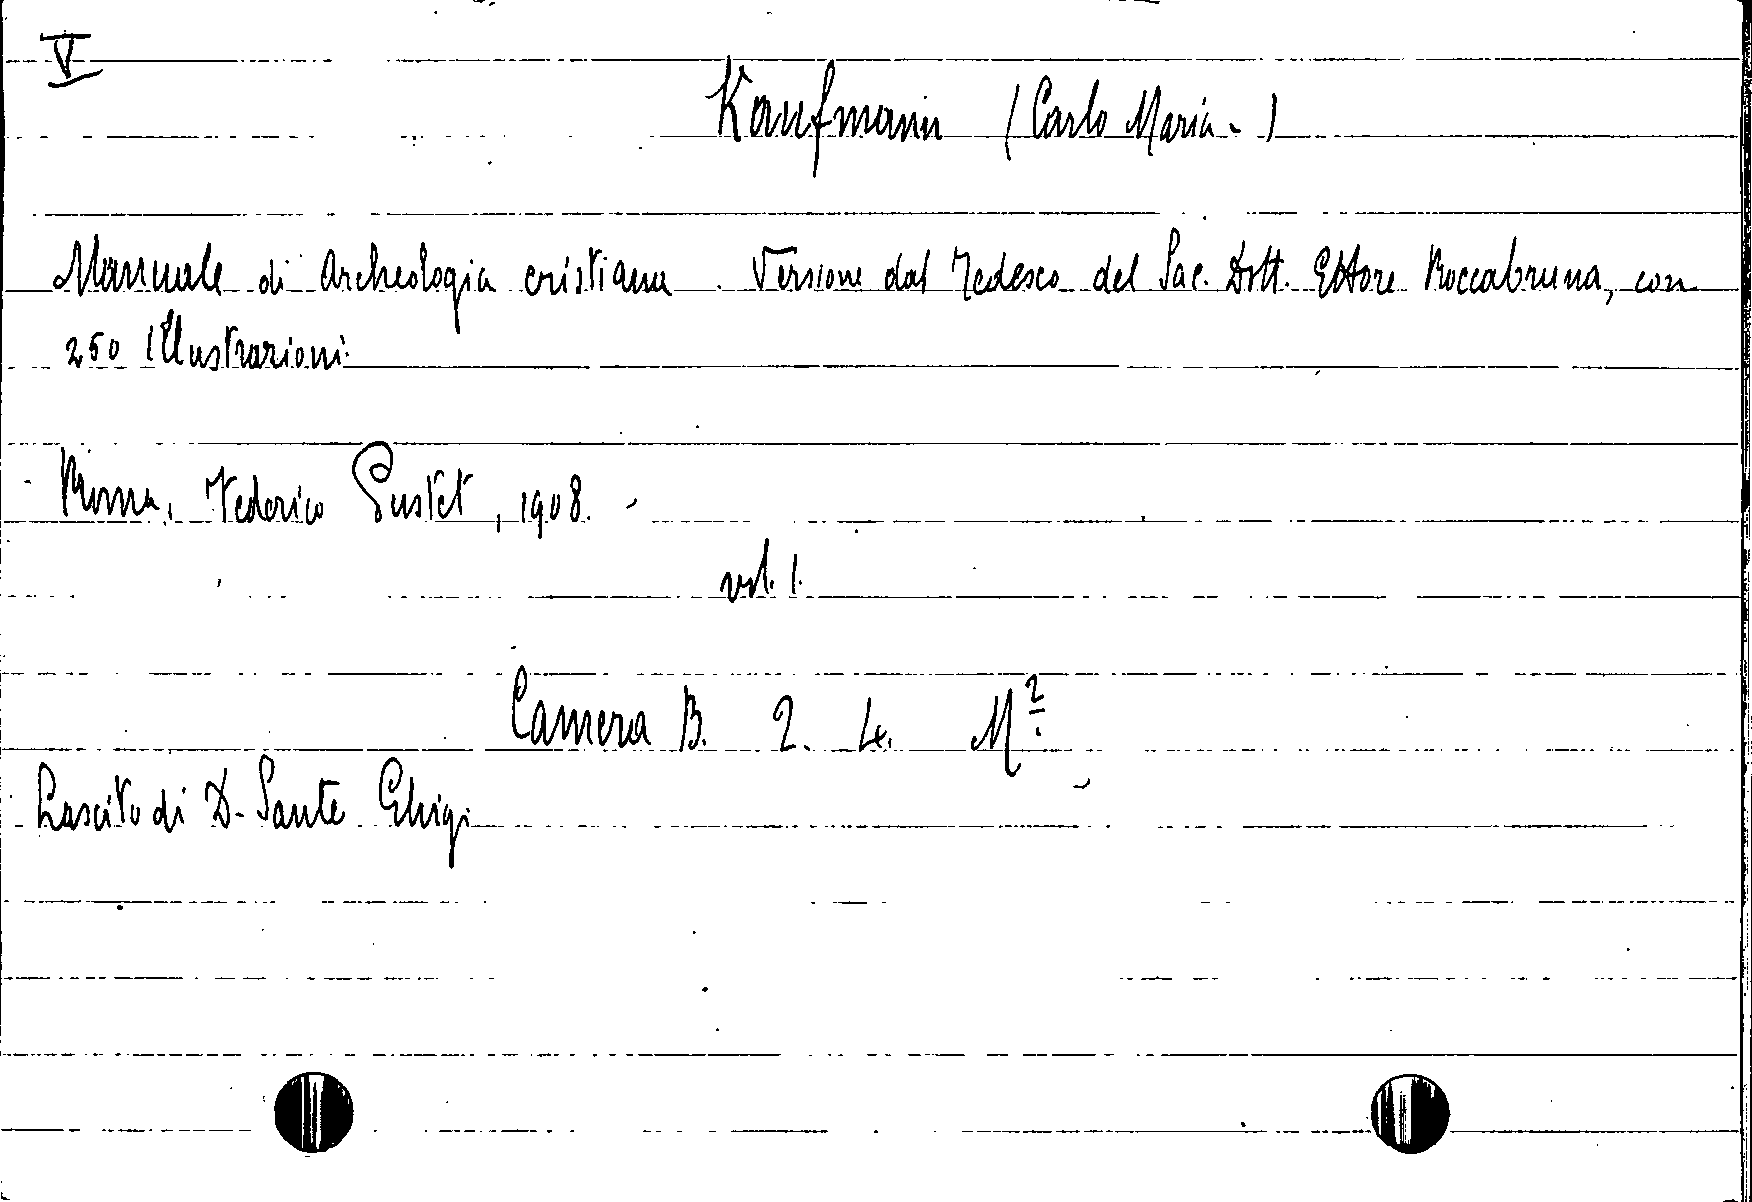 V
Kaufmann (Carlo Maria -)
Manuale di Archeologia cristiana. Versione dal Tedesco del Sac. Dott. Ettore Roccabruna, con
250 Illustrazioni.
Roma, Federico Pustet, 1908.
vol. 1.
Camera B. 2. 4. M²
Lascito di D. Sante Ghigi